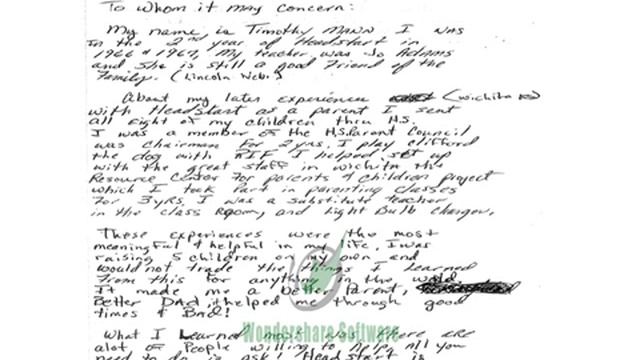 To whom it may concern:
My name is Timothy Mann I was
In the 2nd year of Headstart in
1966 & 1967, My teacher was Jo Adams
and she is still a good friend of the
Family. (Lincoln Neb.)
About my later experience (Wichita KS)
with Headstart as a parent I sent
all eight of my children thru H.S.
I was a member of the H.S. Parent Council
was chairman for 2 yrs. I play clifford
the dog with RIF I helped set up
with the great staff in wichita the
Resource Center for parents & children project
which I took Part in parenting classes
for 3 yrs. I was a substitute teacher
in the class Room, and Light Bulb changer.
These experiences were the most
meaningful & helpful in my life, I was
raising 5 children on my own and
would not trade the things I learned
from this for anything in the world
It made me a better Parent,
Better Dad, it helped me through good
times & Bad!
What I Learned most was there are
alot of People willing to help All you
need to do is ask! Head Start is
Wondershare Software